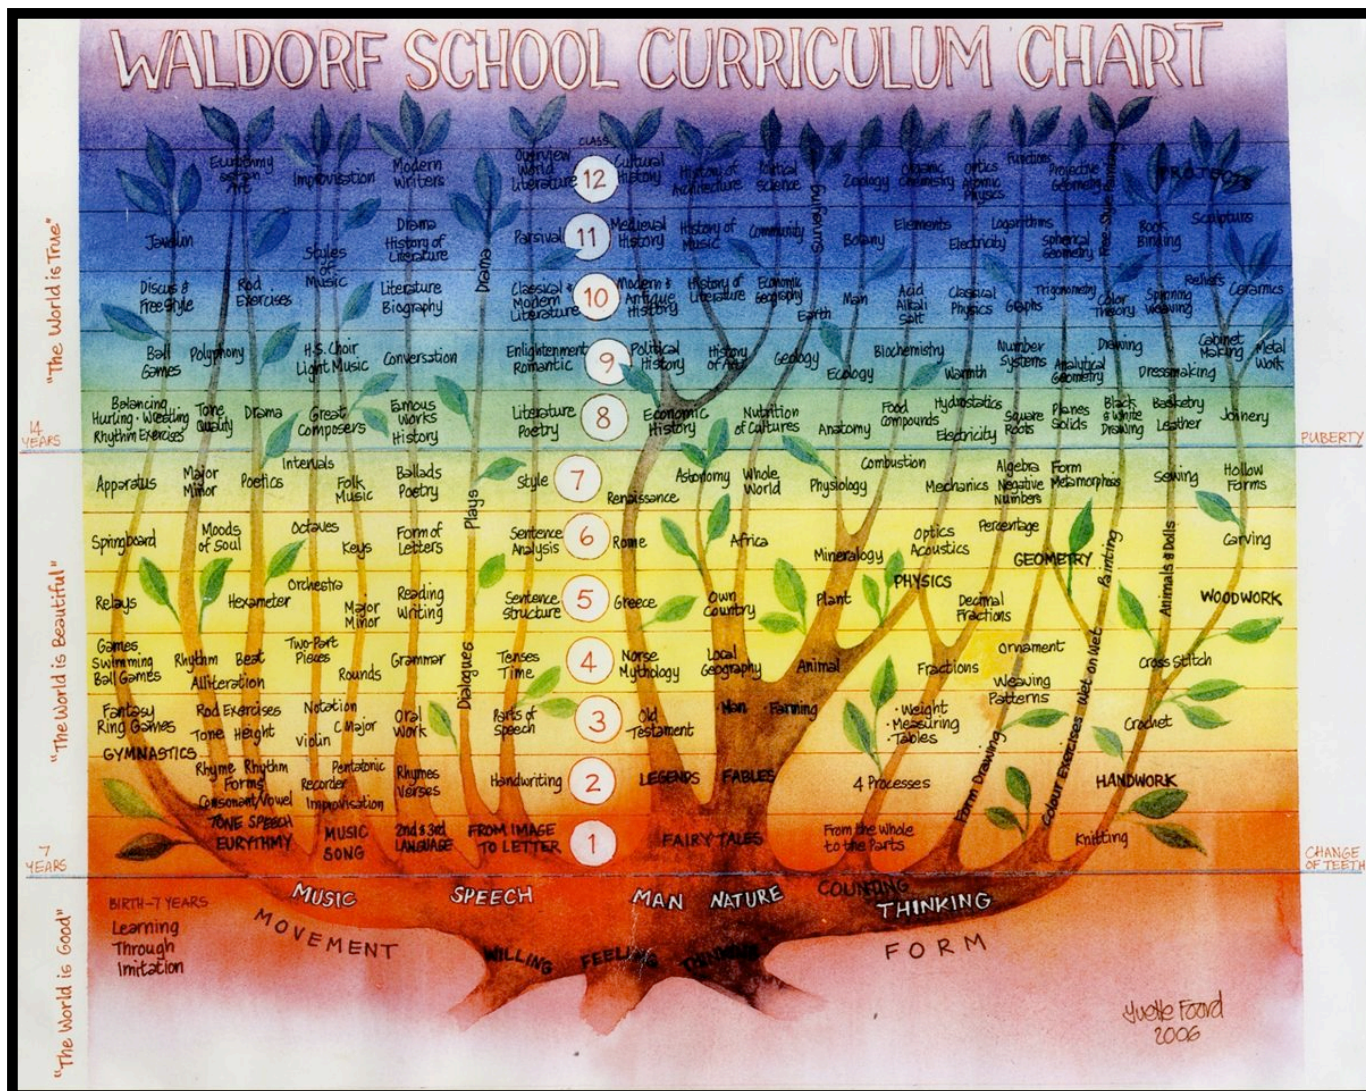 WALDORF SCHOOL CURRICULUM CHART
CLASS
12
Eurythmy as an Art
Improvisation
Modern Writers
Overview World Literature
Cultural History
History of Architecture
Political Science
Surveying
Zoology
Organic Chemistry
Optics Atomic Physics
Functions
Projective Geometry
Free-Style Painting
PROJECTS
11
Javelin
Styles of Music
Drama
History of Literature
Drama
Parsival
Medieval History
History of Music
Community
Botany
Elements
Electricity
Logarithms
Spherical Geometry
Book Binding
Sculpture
10
Discus & Freestyle
Rod Exercises
Literature Biography
Classical & Modern Literature
Modern & Antique History
History of Literature
Economic Geography
Earth
Man
Acid Alkali Salt
Classical Physics
Graphs
Trigonometry
Color Theory
Spinning Weaving
Reliefs
Ceramics
9
Ball Games
Polyphony
H.S. Choir
Light Music
Conversation
Enlightenment Romantic
Political History
History of Art
Geology
Ecology
Biochemistry
Warmth
Number Systems
Analytical Geometry
Drawing
Dressmaking
Cabinet Making
Metal Work
8
Balancing
Hurling · Wrestling
Rhythm Exercises
Tone Quality
Drama
Great Composers
Famous Works
History
Literature Poetry
Economic History
Nutrition of Cultures
Anatomy
Food Compounds
Hydrostatics
Electricity
Square Roots
Planes Solids
Black & White Drawing
Basketry
Leather
Joinery
14 YEARS
PUBERTY
7
Apparatus
Major Minor
Poetics
Intervals
Folk Music
Ballads Poetry
Plays
Style
Renaissance
Astonomy
Whole World
Physiology
Combustion
Mechanics
Algebra
Negative Numbers
Form Metamorphosis
Sewing
Hollow Forms
6
Springboard
Moods of Soul
Octaves
Keys
Form of Letters
Sentence Analysis
Rome
Africa
Mineralogy
Optics Acoustics
Percentage
GEOMETRY
Painting
Animals & Dolls
Carving
5
Relays
Hexameter
Orchestra
Major Minor
Reading Writing
Sentence Structure
Greece
Own Country
Plant
PHYSICS
Decimal Fractions
WOODWORK
4
Games
Swimming
Ball Games
Rhythm
Beat
Alliteration
Two-Part Pieces
Rounds
Grammar
Dialogues
Tenses Time
Norse Mythology
Local Geography
Animal
Fractions
Ornament
Weaving Patterns
Wet on Wet
Cross Stitch
3
Fantasy
Ring Games
GYMNASTICS
Rod Exercises
Tone Height
Notation
Violin
C Major
Oral Work
Parts of Speech
Old Testament
· Man · Farming
· Weight
· Measuring
· Tables
Crochet
2
Rhyme Rhythm
Forms
Consonant/Vowel
Pentatonic
Recorder
Improvisation
Rhymes Verses
Handwriting
LEGENDS
FABLES
4 Processes
Form Drawing
Colour Exercises
HANDWORK
1
TONE SPEECH
EURYTHMY
MUSIC SONG
2nd & 3rd LANGUAGE
FROM IMAGE TO LETTER
FAIRY TALES
From the Whole to the Parts
Knitting
7 YEARS
CHANGE OF TEETH
MUSIC
SPEECH
MAN
NATURE
COUNTING
THINKING
MOVEMENT
FORM
WILLING
FEELING
THINKING
BIRTH–7 YEARS
Learning
Through
Imitation
"The World is True"
"The World is Beautiful"
"The World is Good"
Yvette Foord
2006